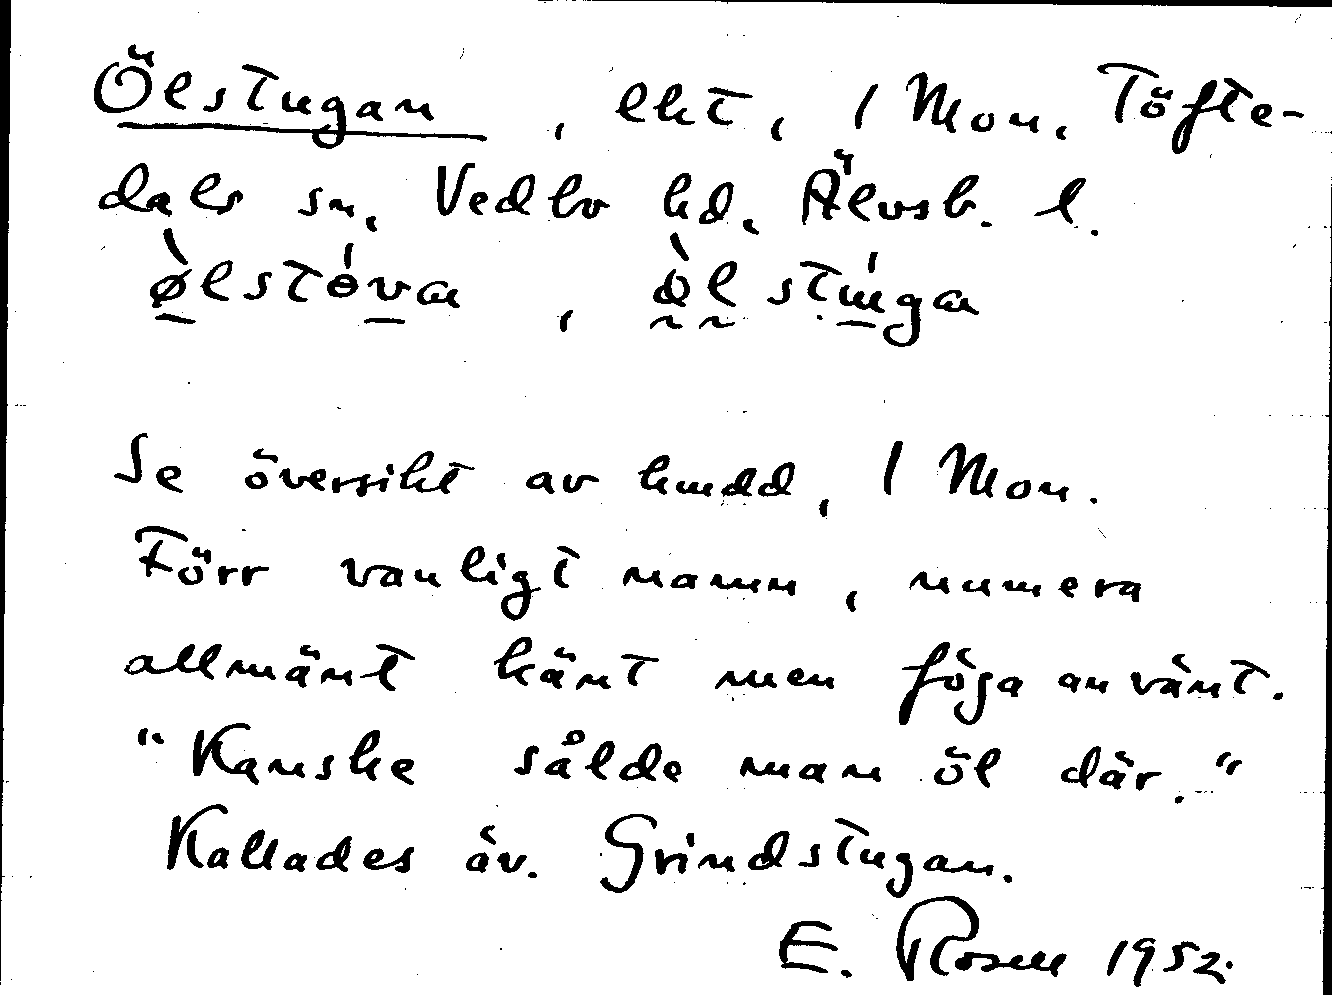 Ölstugan, lht, 1 Mon. Töfte-
dals sn, Vedbo hd, Älvsb. l.
ø̀lstóva, ò̀l stúga
Se översikt av hmdd, 1 Mon.
Förr vanligt namn, numera
allmänt känt men föga använt.
"Kanske sålde man öl där."
Kallades äv. Grindstugan.
E. Rosell 1952.